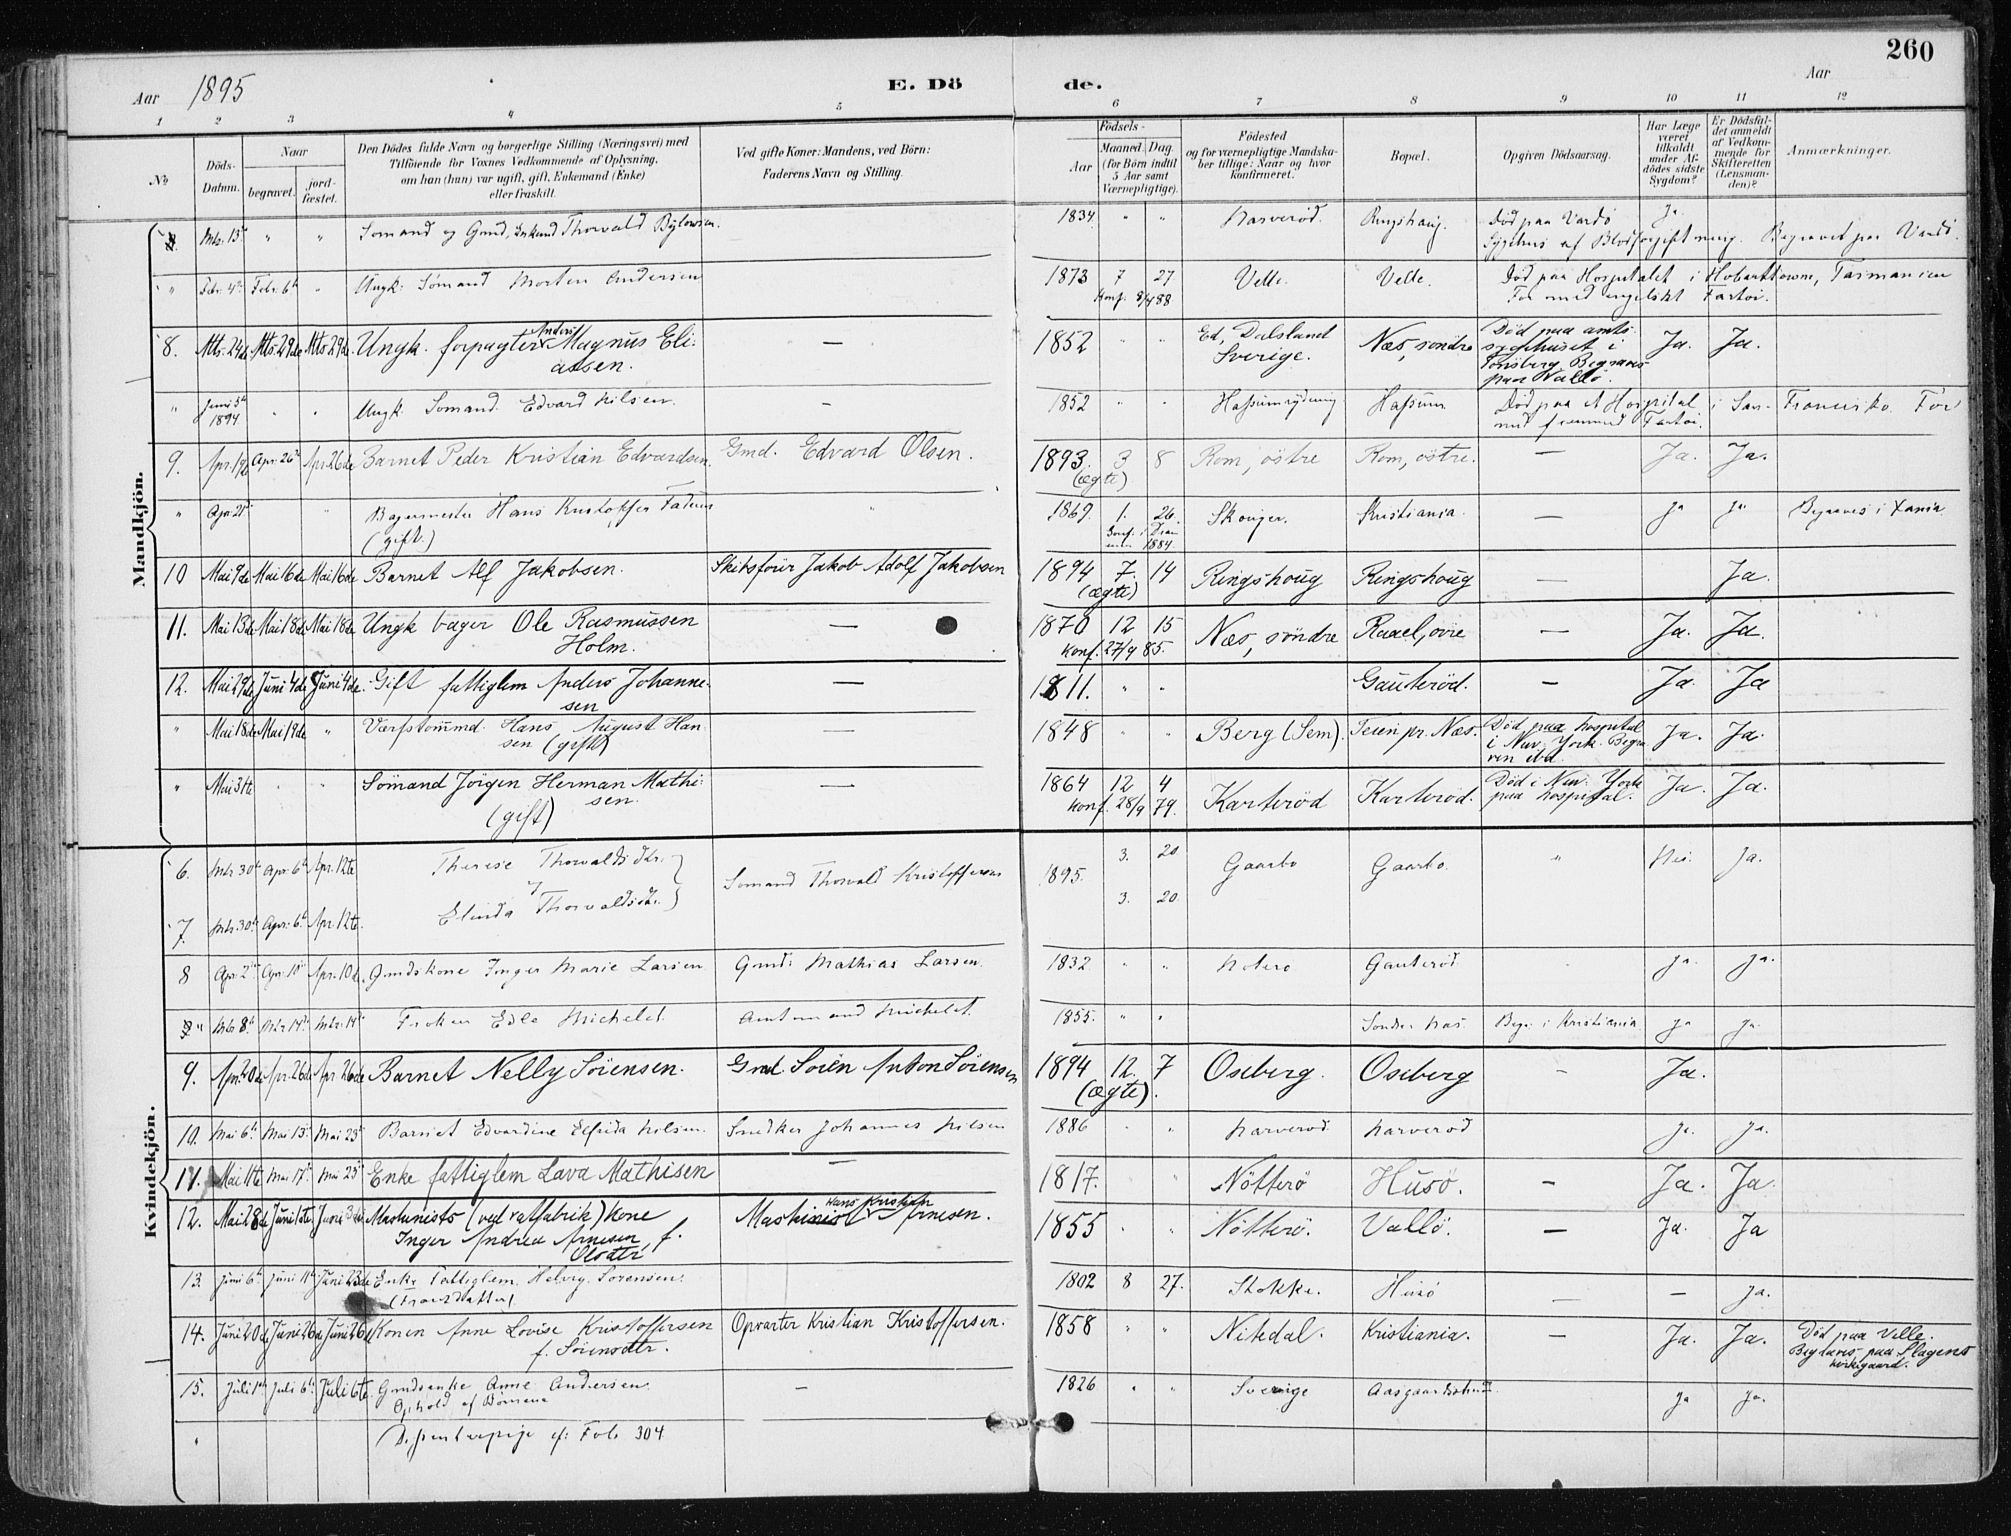 260
Aar 1895
E. Dö
de.
Aar
1 2 3 4 5 6 7 8 9 10 11 12
No
Döds-Datum.
Naar
begravet.
jord-fæstet.
Den Dödes fulde Navn og borgerlige Stilling (Næringsvei) med
Tilföiende for Voxnes Vedkommende af Oplysning,
om han (hun) var ugift, gift, Enkemand (Enke)
eller fraskilt.
Ved gifte Koner: Mandens, ved Börn:
Faderens Navn og Stilling.
Födsels-
Aar
Maaned. Dag.
(for Börn indtil
5 Aar samt
Værnepligtige).
Födested
og for værnepligtige Mandska-
ber tillige: Naar og hvor
konfirmeret.
Bopæl.
Opgiven Dödsaarsag.
Har Læge
været
tilkaldt
under Af-
dödes sidste
Sygdom?
Er Dödsfal-
det anmeldt
af Vedkom-
mende for
Skifteretten
(Lensman-
den)?
Anmærkninger.
Mandkjön.
Mts. 13de " " Sømand og Gmd, Enkemd Thorvald 1834 " " Narverød. Ringshaug. Død paa Vardø Ja.
Sygehus af Blodforgiftning. Begravet paa Vardø.
" Febr. 4de Febr. 6te " Ungk. Sømand Morten Andersen 1873 7 27 Velle. Velle. Død paa Hospitalet i Hobarttown, Tasmanien
Konf. 8/4 88 For med engelskt Fartøi.
8. Mts. 24de Mts 29de Mts 29de Ungk. forpagter Anders Magnus Eli-
assen. — 1852 " " Ed, Dalsland
Sverige. Næs, søndre Død paa amts-
sygehuset i
Tønsberg. Begraves
paa Vallø. Ja. Ja.
" Juni 5te
1894 " " Ungk. Sømand Edvard Nilsen. — 1852 " " Hassumrydning Hassum Død paa et Hospital i San Francisko. For
med fremmed Fartøi.
9. Apr. 19de Apr. 26de Apr. 26de Barnet Peder Kristian Edvardsen. Gmd. Edvard Olsen. 1893 3 8
(ægte) Rom, østre Rom, østre. — Ja. Ja.
" Apr. 21de " Bagermester Hans Kristoffer Fadum
(gift.) " 1869. 1. 26.
Konf. i Dram
men 1884. Skouger. Kristiania. — Ja Ja Begraves i Xania
10 Mai 9de Mai 16de Mai 16de Barnet Alf Jakobsen. Skibsfører Jakob Adolf Jakobsen 1894 7. 14
(ægte) Ringshoug Ringshoug — Ja.
11. Mai 13de Mai 18de Mai 18de Ungk bager Ole Rasmussen
Holm. — 1870 12 15
Konf. 27/9 85. Næs, søndre Raael, øvre — Ja. Ja.
12. Mai 29de Juni 4de Juni 4de. Gift fattiglem Anders Johanne-
sen — 1811. " " Gauterød. — Ja. Ja
" Mai 18de Mai 19de " Værfstømmd. Hans August Han-
sen (gift) — 1848 " " Berg (Sem). Teien pr. Næs. Død paa hospital
i New-York. Begra
ven ibd. Ja. Ja.
" Mai 31te " " Sømand Jørgen Herman Mathi-
sen.
(gift) — 1864 12 4
Konf. 28/9 79. Karterød Karterød. Død i New-York
paa hospital. Ja. Ja.
Kvindekjön.
6. Mts 30te Apr. 6te Apr. 12te Therese Thorvaldsdtr. Sømand Thorvald Kristoffersen 1895. 3. 20 Gaarbo Gaarbo. " Nei. Ja.
7. Mts. 30te Apr. 6te Apr. 12te. Elinda Thorvaldsdtr. 3. 20.
8 Apr. 2den Apr. 10de Apr. 10de. Gmdskone Inger Marie Larsen Gmd: Mathias Larsen. 1832 " " Noterø Gauterød Ja. Ja.
" Mts. 8de Mts 14de Mts. 14de Frøken Edle Michelet. Amtmand Michelet. 1855. " " Søndre Næs. Begr. i Kristiania Ja Ja.
9. Apr. 20de Apr. 26de Apr 26de Barnet Nelly Sørensen. Gmd. Søren Anton Sørensen 1894 12. 7
(ægte). Oseberg. Oseberg — Ja.
10. Mai 6te Mai 13de Mai 23de Barnet Edvardine Elfrida Nilsen. Snedker Johannes Nilsen 1886 " " Narverød Narverød Ja. Ja.
11. Mai 11te Mai 17de Mai 23de Enke fattiglem Lava Mathisen — 1817. Nøtterø Husø. — Ja. Ja.
12. Mai 28de Juni 1ste. Juni 3de Maskinists (ved vatfabrik) kone
Inger Andrea Arnesen, f.
Olsdtr. Maskinist Hans Kristian Arnesen. 1855 " " Nøtterø. Vallø. — Ja. Ja
13. Juni 6te Juni 11te Juni 23de Enke Fattiglem. Helvig Sørensen.
(Franzdatter). 1802 8 27. Stokke. Husø — — Ja.
14. Juni 20de Juni 26de Juni 26de Konen Anne Lovise Kristoffersen
f. Sørensdtr. Opvarter Kristian Kristoffersen. 1858 " " Nitedal. Kristiania. — Ja. Ja. Død paa Velle.
Begraves paa Slagens
kirkegaard.
15. Juli 1ste Juli 6te Juli 6te Gmdsenke Anne Andersen
Ophold af Børnene — 1826 " " Sverige Aasgaardstrand Ja Ja.
" Fol. 304